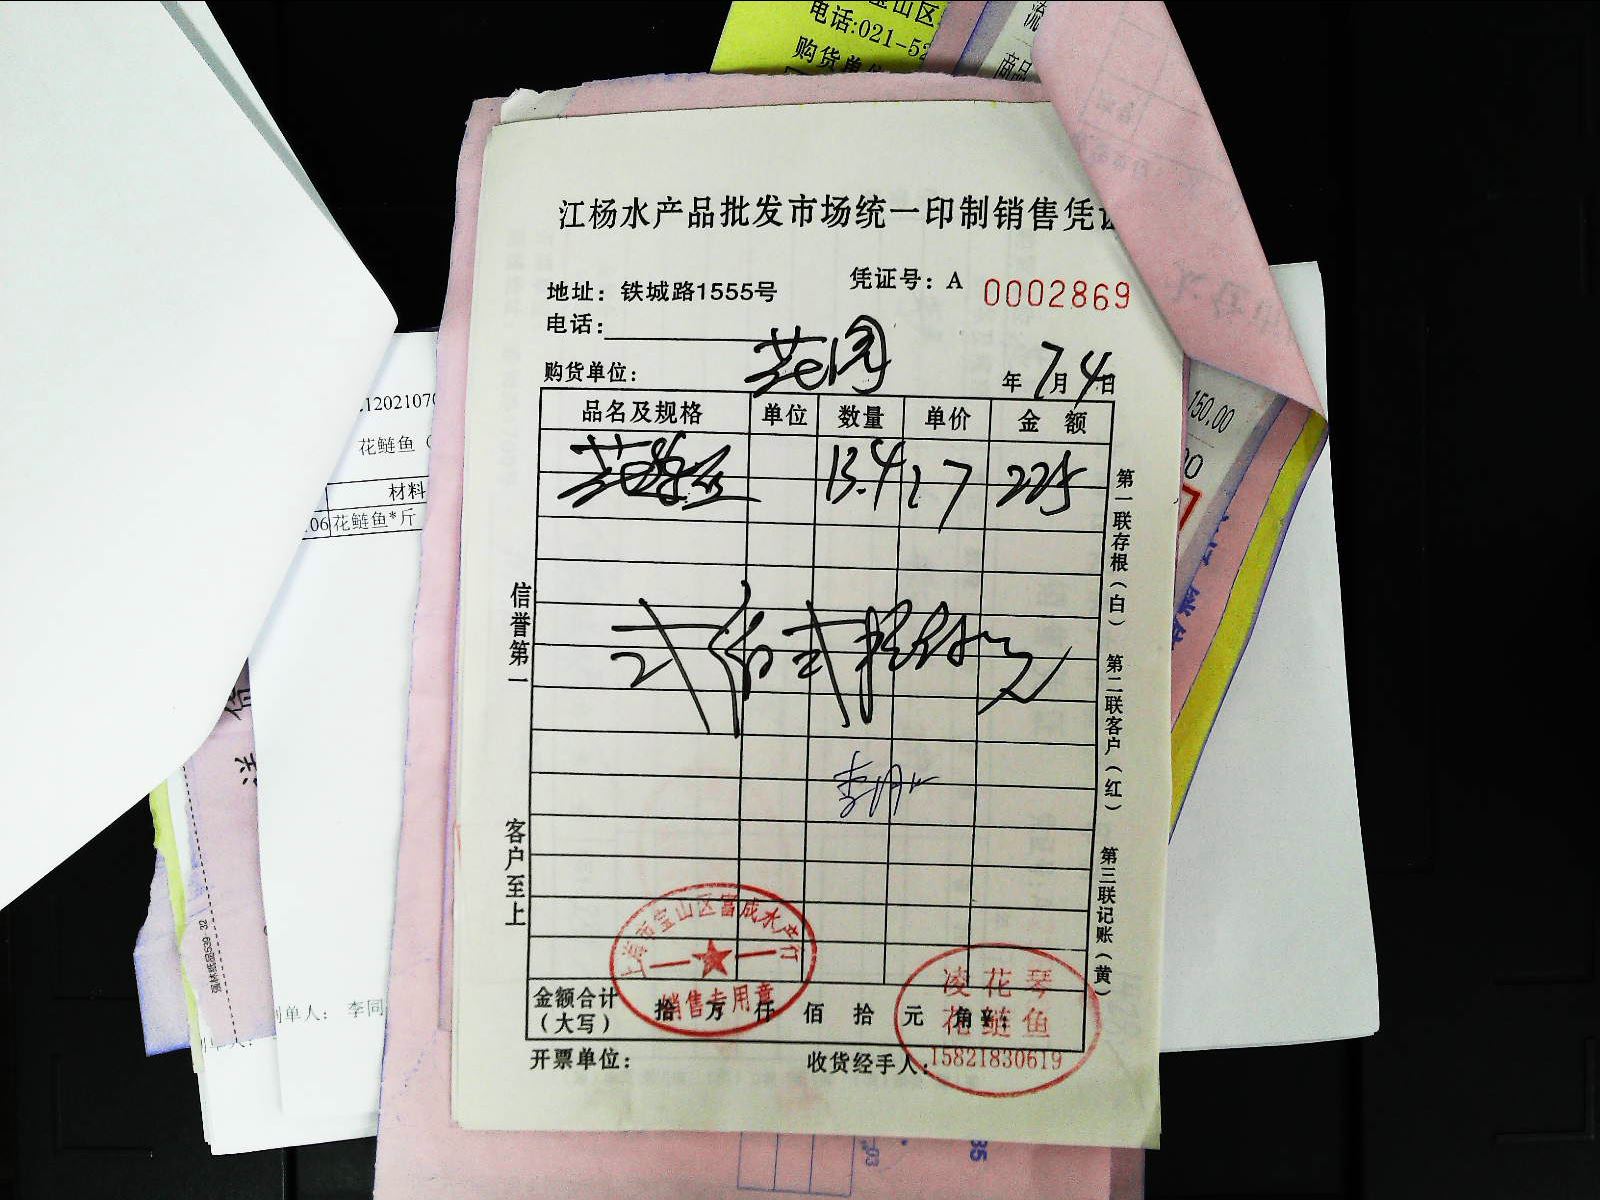 宝山区
电话:021-52
购货单位
流
商品
江杨水产品批发市场统一印制销售凭证
地址：铁城路1555号
凭证号：A 0002869
电话：
购货单位： 花园
年 7月4日
品名及规格 单位 数量 单价 金 额
花鲢鱼 13.4 17 225
弍佰弍拾伍元
信誉第一
客户至上
第一联存根（白） 第二联客户（红） 第三联记账（黄）
上海市宝山区富成水产行
销售专用章
金额合计（大写） 拾 万 仟 佰 拾 元 角
凌花琴
花鲢鱼
15821830619
开票单位：
收货经手人：
12021070
花鲢鱼（
材料
06 花鲢鱼*斤
制单人： 李同
150.00
00
强林纸品539-32
35